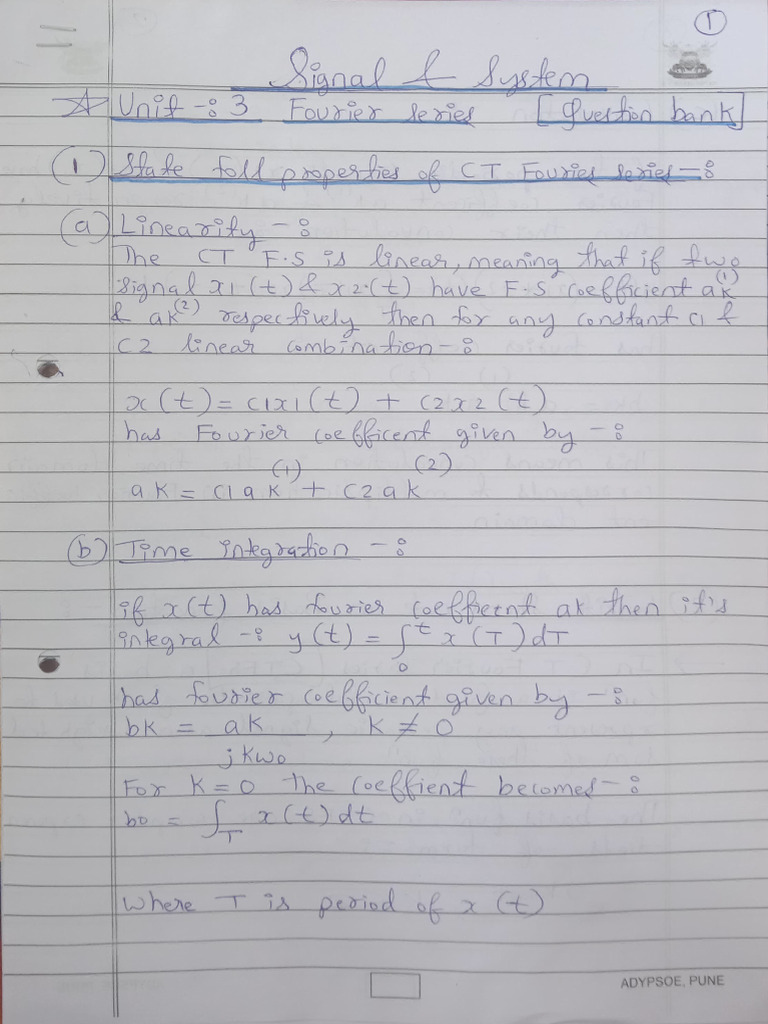 1
Signal & System
Unit -: 3 Fourier series [Question bank]
(1) State foll properties of CT Fouries series -:
(a) Linearity -:
The CT F.S is linear, meaning that if two
signal x1(t) & x2.(t) have F.S coefficient ak^(1)
& ak^(2) respectively then for any constant c1 &
C2 linear combination -:
x(t) = c1x1(t) + c2x2(t)
has Fourier coefficent given by -:
ak = c1ak^(1) + c2ak^(2)
(b) Time integration -:
if x(t) has fourier coeffient ak then it's
integral -: y(t) = ∫₀ᵗ x(T)dT
has fourier coefficient given by -:
bk = ak , K ≠ 0
jkwo
For K=0 The Coeffient becomes -:
bo = ∫_T x(t) dt
Where T is period of x(t)
ADYPSOE, PUNE